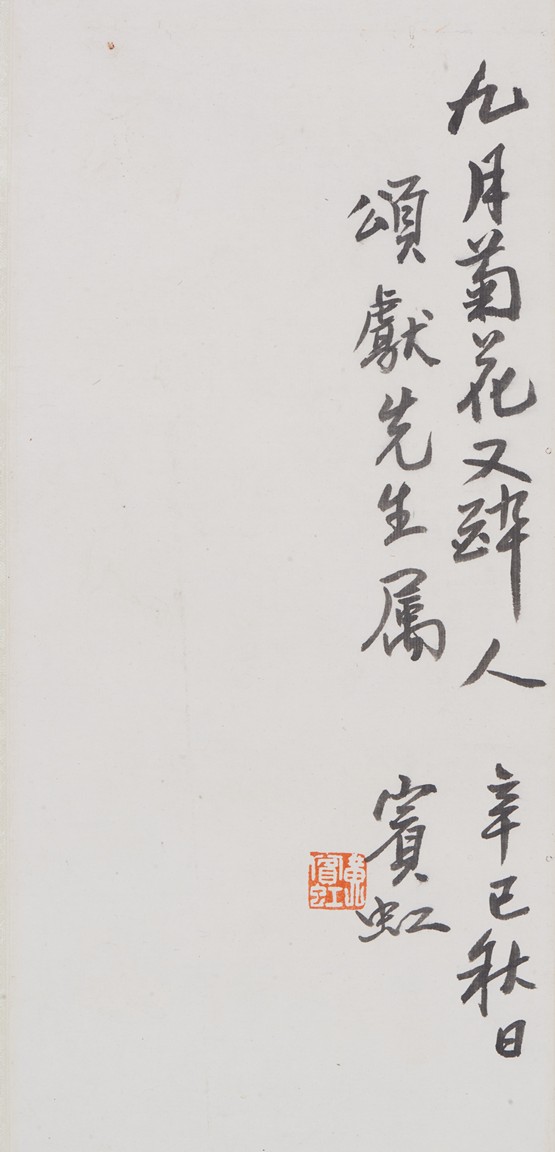 九月菊花又醉人 辛巳秋日
頌獻先生属 賓虹
黃賓虹